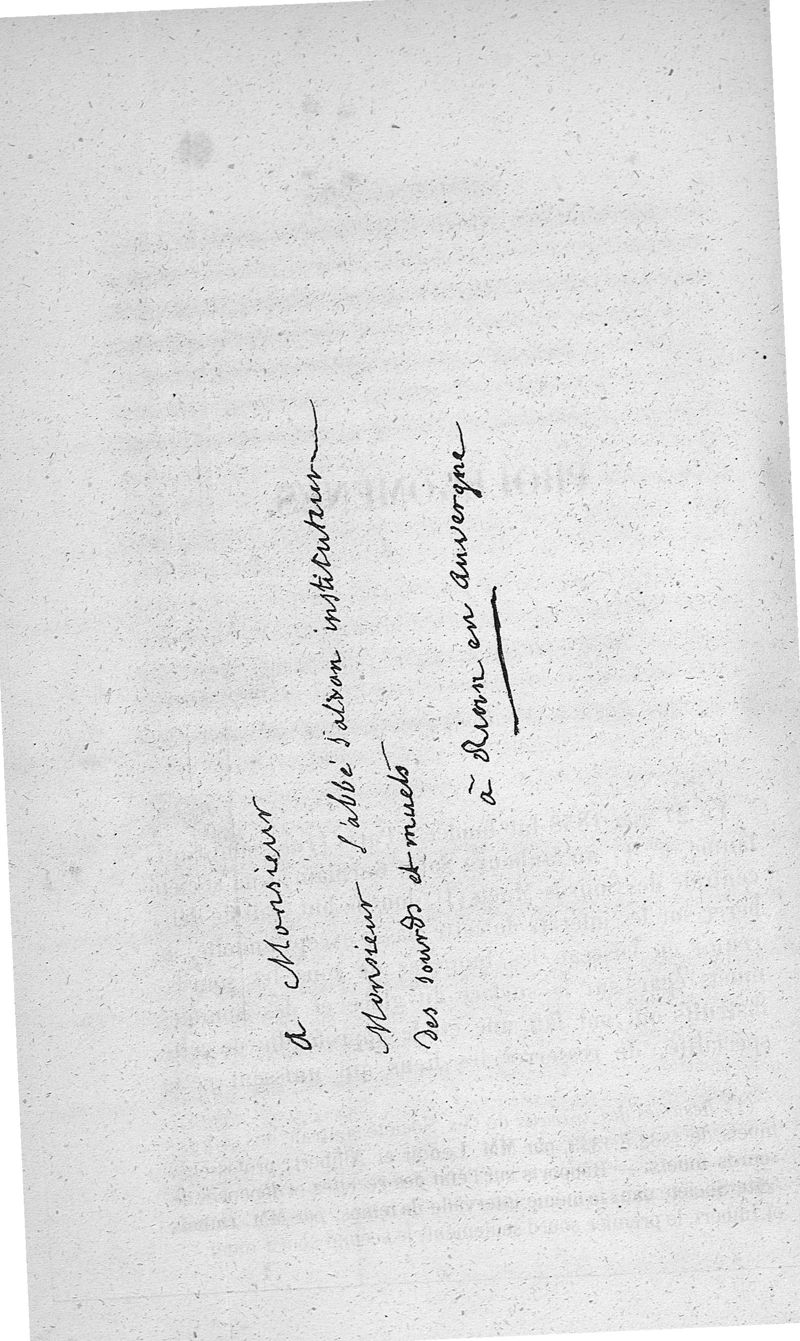 a Monsieur
Monsieur l'abbé Salvan instituteur
des sourds et muets
à Riom en auvergne